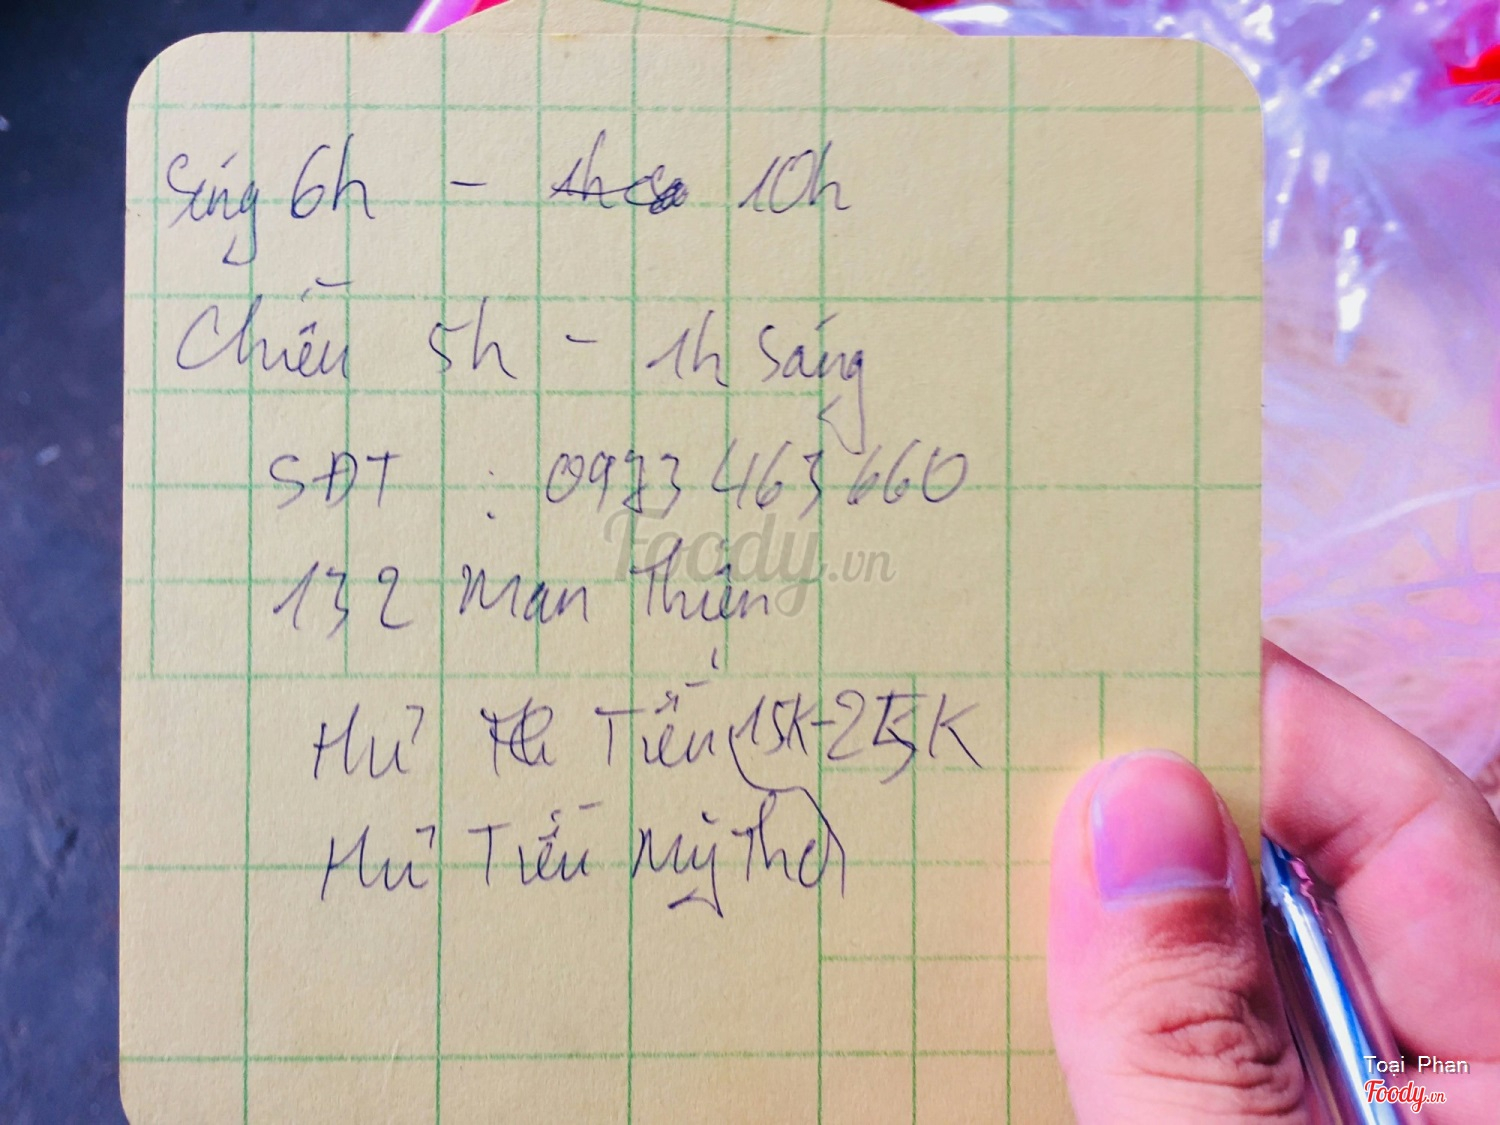 Sáng 6h - 10h
Chiều 5h - 1h Sáng
SĐT : 0973 463 660
132 Man Thiện
Hủ Tiếu (15K-25K
Hủ Tiếu Mỹ Tho)
Foody.vn
Toại Phan
Foody.vn